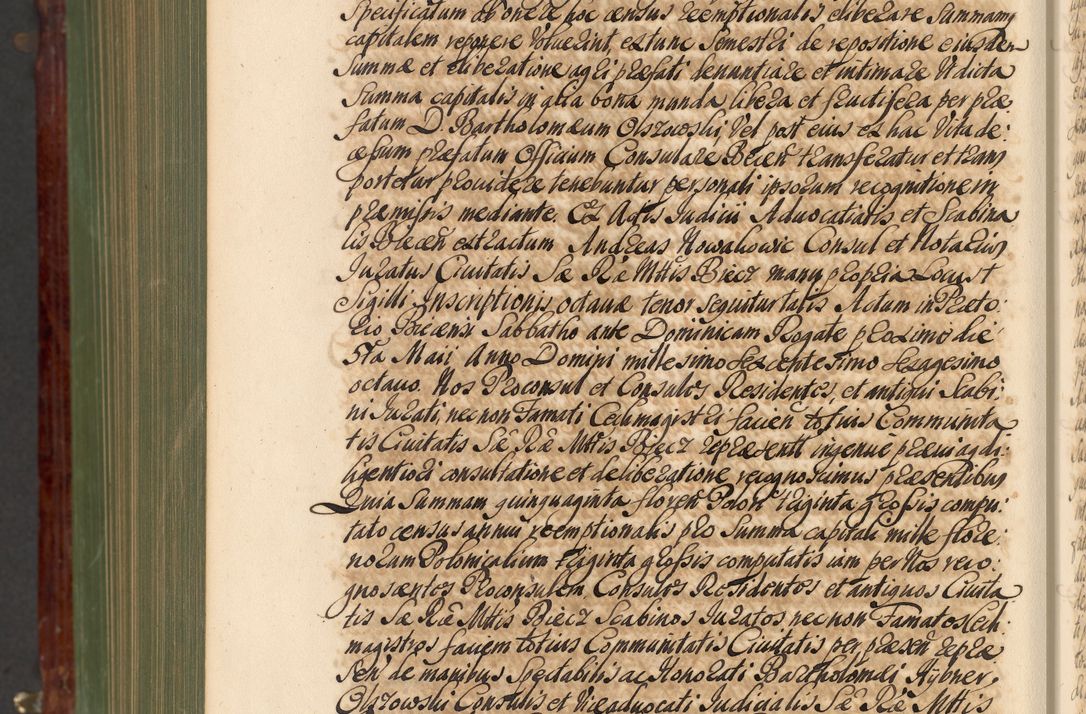 Specificatum ab onere hoc census reemptionalis eliberare Summam
capitalem reponere voluerint, extunc Semestri de repositione eiusdem
Summæ et eliberatione agri præfati denuntiare et intimare Ut dicta
Summa capitalis in alia bona munda, libera et fructifera per præ
fatum D. Bartholomæum Olszowski, Vel post eius ex hac Vita de:
cessum præfatum Officium Consulare Biecen̄ transferatur et trans
portetur providere tenebuntur personali ipsorum recognitione in
præmissis mediante. Ex Actis Judicii Advocatialis et Scabina
lis Biecen̄ extractum Andreas Nowakowic Consul et Notarius
Juratus Civitatis Sæ Ræ Mttis Biecz manu propria Locus +
Sigilli Inscriptionis octavæ tenor sequitur talis Actum in Præto:
rio Biecensi Sabbatho ante Dominicam Rogate proximo die
5ta Maii Anno Domini millesimo sexcentesimo sexagesimo
octavo. Nos Proconsul et Consules Residentes, et antiqui Scabi:
ni Jurati, nec non Famati Cechmagistri facien̄ totius Communita
tis Civitatis Sæ Ræ Mttis Biecz repræsentt ingenuè prævia di:
ligentiori consultatione et deliberatione, recognoscimus præsentibus
Quia Summam quinquaginta floren̄ Polon̄ triginta grossis compu:
tato census annui reemptionalis pro Summa capitali mille flore:
norum Polonicalium triginta grossis computatis iam per Nos reco:
gnoscentes Proconsulem Consules Residentes et antiquos Civita
tis Sæ Ræ Mttis Biecz Scabinos Juratos nec non Famatos Cech
magistros faciem totius Communitatis Civitatis per præsen̄ repræ
sen̄ de manibus Spectabilis ac Honorati Bartholomæi Hybner
Olszowski Consulis et Viceadvocati Judicialis Sæ Ræ Mttis